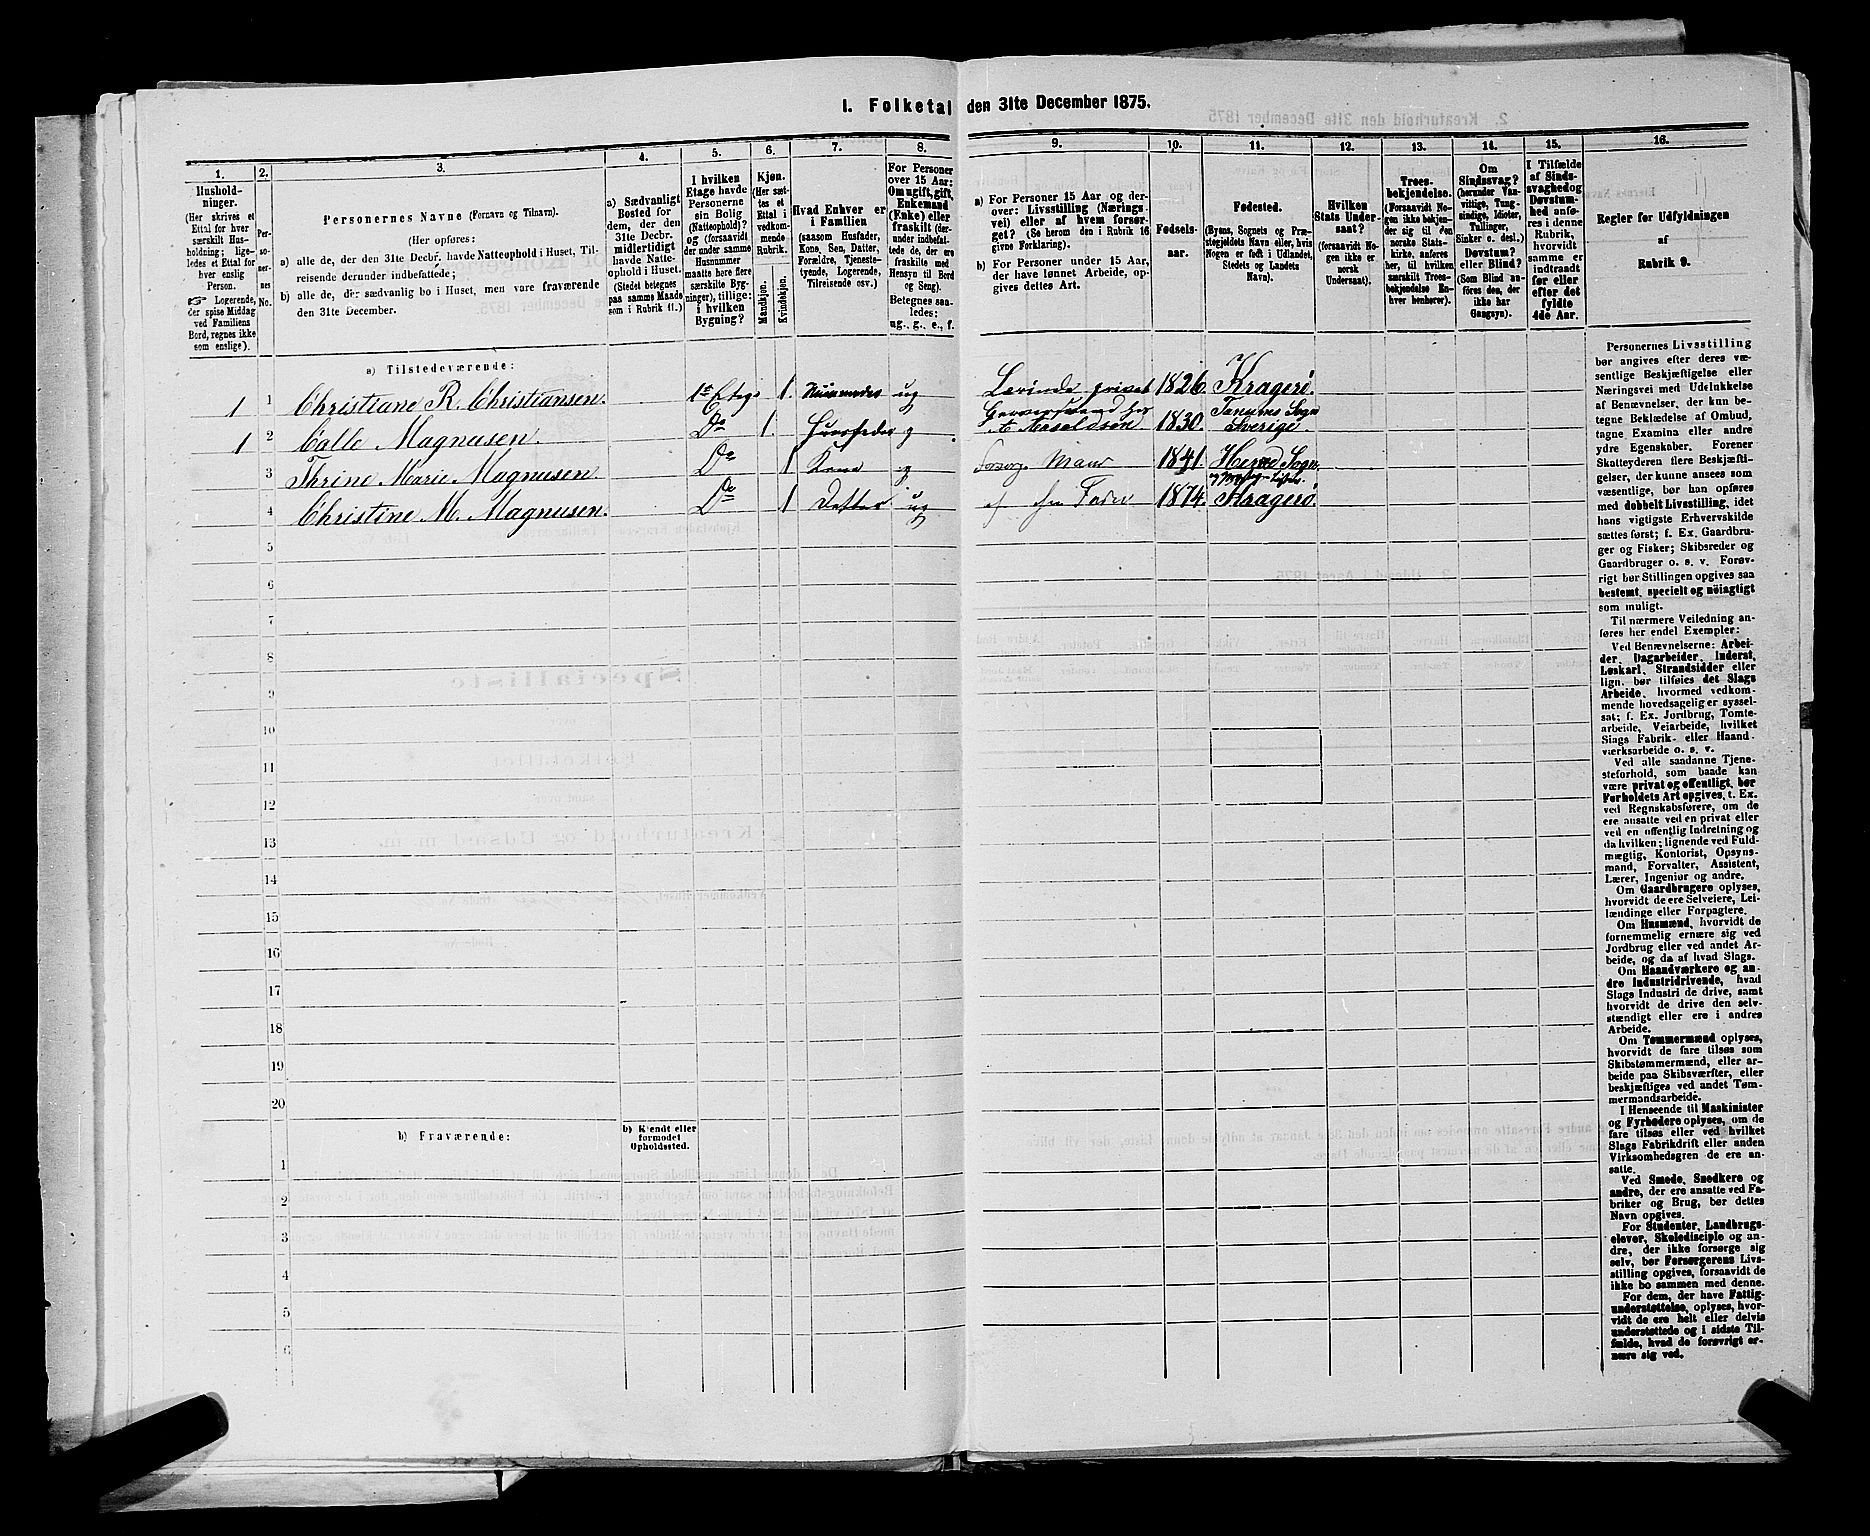 1. Folketal den 31te December 1875.
1.
2.
3.
4.
5.
6.
7.
8.
9.
10.
11.
12.
13.
14.
15.
16.
Hushold-
ninger.
(Her skrives et
Ettal for hver
særskilt Hus-
holdning; lige-
ledes et Ettal for
hver enslig
Person.
☞ Logerende,
der spise Middag
ved Familiens
Bord, regnes ikke
som enslige).
Per-
so-
ner-
nes
No.
Personernes Navne (Fornavn og Tilnavn).
(Her opføres:
a) alle de, der den 31te Decbr. havde Natteophold i Huset, Til-
reisende derunder indbefattede;
b) alle de, der sædvanlig bo i Huset, men vare fraværende
den 31te December.
a) Sædvanligt
Bosted for
dem, der den
31te Decbr.
midlertidigt
havde Natte-
ophold i Huset.
(Stedet betegnes
paa samme Maade
som i Rubrik 11.)
I hvilken
Etage havde
Personerne
sin Bolig
(Natteophold)?
og (forsaavidt
der under samme
Husnummer
maatte høre flere
særskilte Byg-
ninger), tillige:
i hvilken
Bygning?
Kjøn.
(Her sæt-
tes et
Ettal i
vedkom-
mende
Rubrik.)
Mandkjøn.
Kvindekjøn.
Hvad Enhver er
i Familien
(saasom Husfader,
Kone, Søn, Datter,
Forældre, Tjeneste-
tyende, Logerende,
Tilreisende osv.)
For Personer
over 15 Aar:
Om ugift, gift,
Enkemand
(Enke) eller
fraskilt (der-
under indbefat-
tede de, der ere
fraskilte med
Hensyn til Bord
og Seng).
Betegnes saa-
ledes:
ug., g., e., f.
a) For Personer 15 Aar og der-
over: Livsstilling (Nærings-
vei) eller af hvem forsør-
get? (Se herom den i Rubrik 16
givne Forklaring).
b) For Personer under 15 Aar,
der have lønnet Arbeide, op-
gives dettes Art.
Fødsels-
aar.
Fødested.
(Byens, Sognets og Præ-
stegjeldets Navn eller, hvis
Nogen er født i Udlandet,
Stedets og Landets
Navn).
Hvilken
Stats Under-
saat?
(forsaavidt No-
gen ikke er
norsk
Undersaat).
Troes-
bekjendelse.
(Forsaavidt No-
gen ikke bekjen-
der sig til den
norske Stats-
kirke, anføres
her, til hvilken
særskilt Troes-
bekjendelse En-
hver henhører).
Om
Sindssvag?
(herunder Van-
vittige, Tung-
sindige, Idioter,
Tullinger,
Sinker o. desl.)
Døvstum?
eller Blind?
(Som Blind an-
føres den, der
ikke har
Gangsyn).
I Tilfælde
af Sinds-
svaghed og
Døvstum-
hed anfø-
res i denne
Rubrik,
hvorvidt
samme er
indtraadt
før eller
efter det
fyldte
4de Aar.
Regler for Udfyldningen
af
Rubrik 9.
a) Tilstedeværende:
1 1 Christiane R. Christiansen. 1st Etage 1. ug Levinde privat 1826. Kragerö.
1 2 Calle Magnusen. Do 1. g 1830. Tanums Sogn Sverige.
3 Thrine Marie Magnusen Do 1 Kone g Forsørg. Mand 1841. Sogn
4 Christine M. Magnusen. Do 1 Datter. ug af Fader 1874. Kragerö.
5
6
7
8
9
10
11
12
13
14
15
16
17
18
19
20
b) Fraværende:
b) Kjendt eller
formodet
Opholdssted.
1
2
3
4
5
6
Personernes Livsstilling
bør angives efter deres væ-
sentlige Beskjæftigelse eller
Næringsvei med Udelukkelse
af Benævnelser, der kun be-
tegne Beklædelse af Ombud,
tagne Examina eller andre
ydre Egenskaber. Forener
Skatteyderen flere Beskjæfti-
gelser, der kunne ansees som
væsentlige, bør han opføres
med dobbelt Livsstilling, idet
hans vigtigste Erhvervskilde
sættes først; f. Ex. Gaardbru-
ger og Fisker; Skibsreder og
Gaardbruger o. s. v. Forøv-
rigt bør Stillingen opgives saa
bestemt, specielt og nöiagtigt
som muligt.
Til nærmere Veiledning an-
føres her endel Exempler:
Ved Benævnelserne: Arbei-
der, Dagarbeider, Inderst,
Løskarl, Strandsidder eller
lign. bør tilføies det Slags
Arbeide, hvormed vedkom-
mende hovedsagelig er syssel-
sat; f. Ex. Jordbrug, Tomte-
arbeide, Veiarbeide, hvilket
Slags Fabrik- eller Haand
værksarbeide o. s. v.
Ved alle saadanne Tjene-
steforhold, som baade kan
være privat og offentligt, bør
Forholdets Art opgives, t. Ex.
ved Regnskabsførere, om de
ere ansatte ved en privat eller
ved en offentlig Indretning og
da hvilken; lignende ved Fuld-
mægtig, Kontorist, Opsyns-
mand, Forvalter, Assistent,
Lærer, Ingeniør og andre.
Om Gaardbrugere oplyses,
hvorvidt de ere Selveiere, Lei-
lændinge eller Forpagtere.
Om Husmænd, hvorvidt de
fornemmelig ernære sig ved
Jordbrug eller ved andet Ar-
beide, og da af hvad Slags.
Om Haandværkere og an-
dre Industridrivende, hvad
Slags Industri de drive, samt
hvorvidt de drive den selv-
stændigt eller ere i andres
Arbeide.
Om Tømmermænd oplyses,
hvorvidt de fare tilsøs som
Skibstømmermænd, eller ar-
beide paa Skibsværfter, eller
beskjæftiges ved andet Tøm-
mermandsarbeide.
I Henseende til Maskinister
og Fyrbødere oplyses, om de
fare tilsøs eller ved hvilket
Slags Fabrikdrift eller anden
Virksomhedsgren de ere an-
satte.
Ved Smede, Snedkere og
andre, der ere ansatte ved Fa-
briker og Brug, bør dettes
Navn opgives.
For Studenter, Landbrugs-
elever, Skoledisciple og an-
dre, der ikke forsørge sig
selv, bør Forsørgerens Livs-
stilling opgives, forsaavidt de
ikke bo sammen med denne.
For dem, der have Fattig-
understøttelse, oplyses, hvor-
vidt de ere helt eller delvis
understøttede og i sidste Til-
fælde, hvad de forøvrigt er-
nære sig ved.